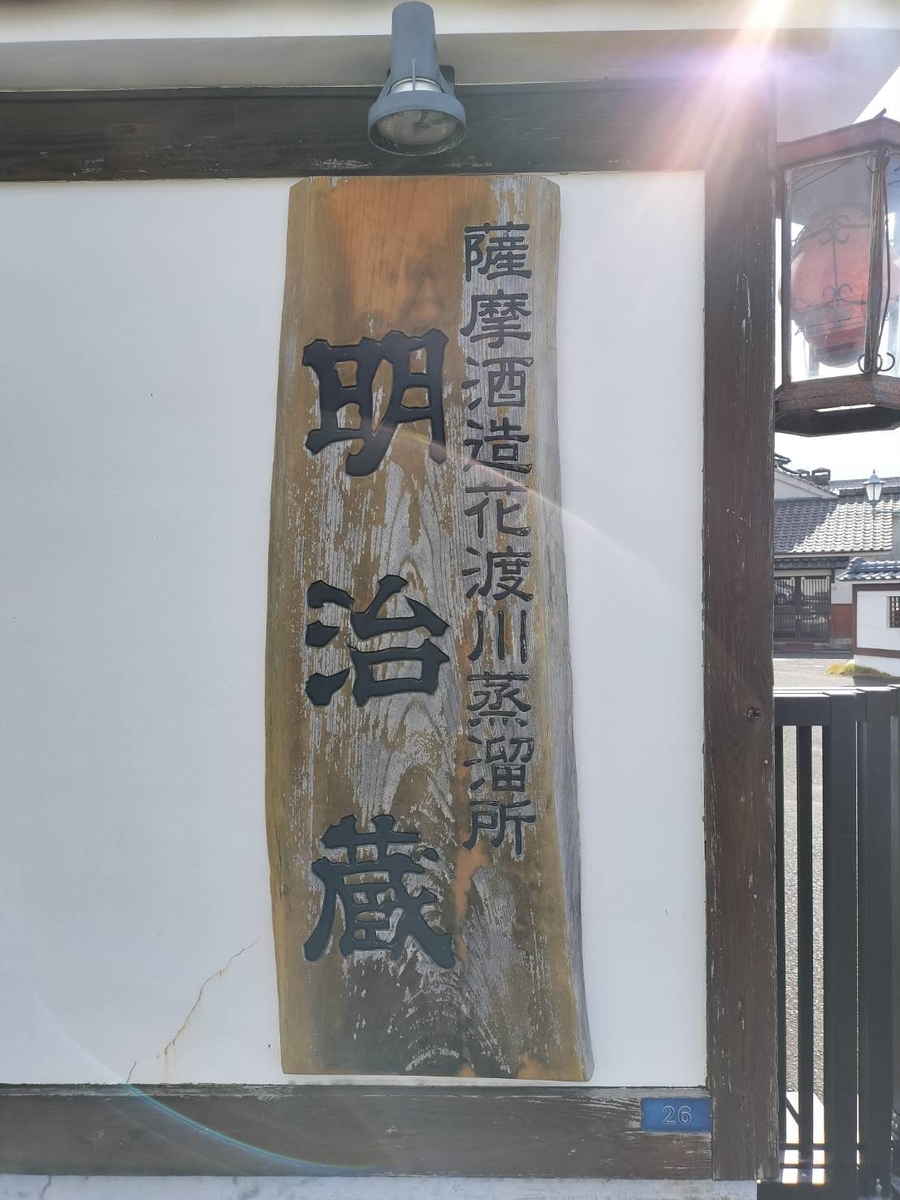 薩摩酒造花渡川蒸溜所
明治蔵
26